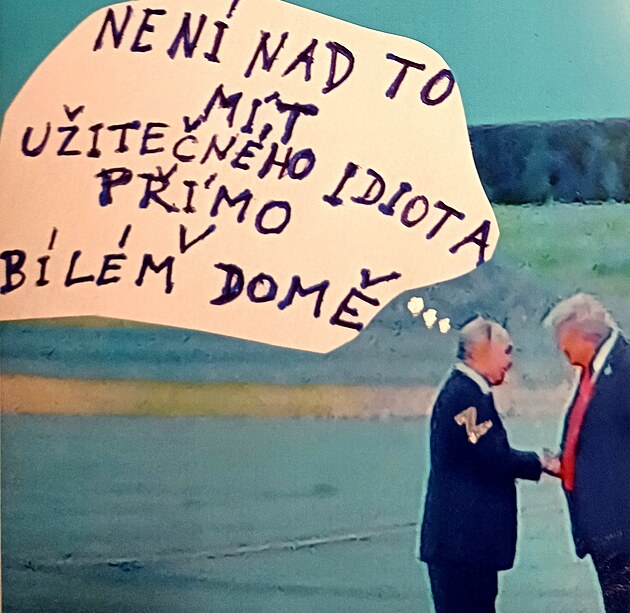 NENÍ NAD TO
MÍT
UŽITEČNÉHO IDIOTA
PŘÍMO
V
BÍLÉM DOMĚ
Z